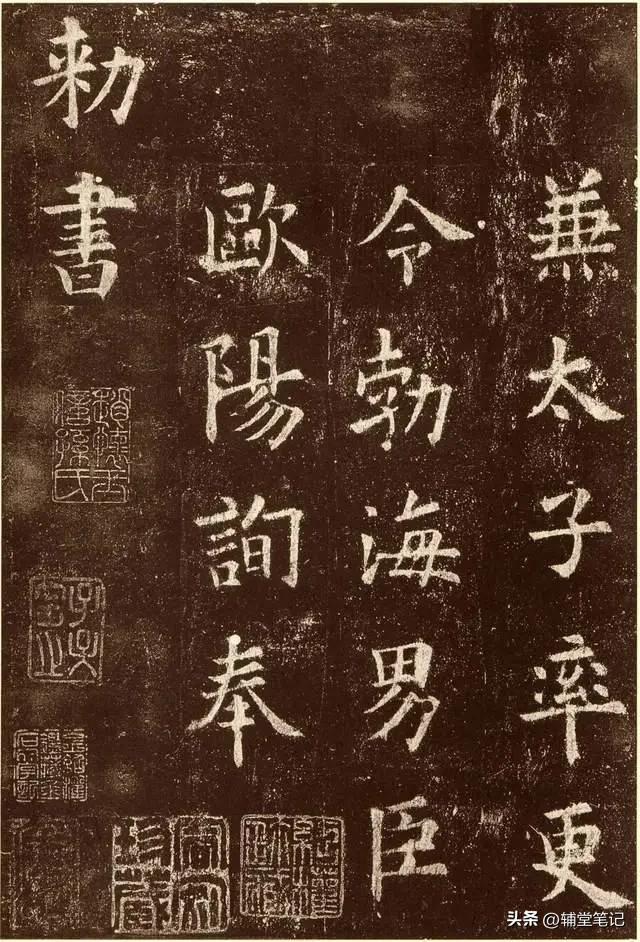 兼太子率更
令勃海男臣
歐陽詢奉
勑書
头条 @辅堂笔记